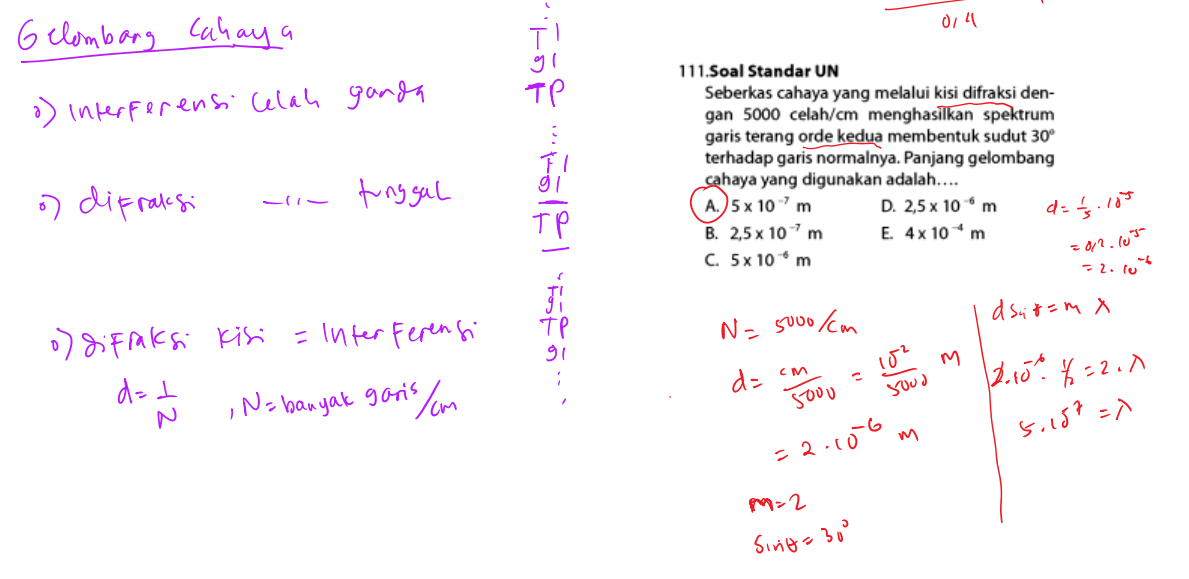 Gelombang Cahaya
o) Interferensi celah ganda
o) difraksi —11— tunggal
o) difraksi kisi = Interferensi
d = 1/N , N = banyak garis/cm
⋮
T1
g1
TP
⋮
T1
g1
TP
⋮
T1
g1
TP
g1
⋮
0,4
111.Soal Standar UN
Seberkas cahaya yang melalui kisi difraksi den-
gan 5000 celah/cm menghasilkan spektrum
garis terang orde kedua membentuk sudut 30°
terhadap garis normalnya. Panjang gelombang
cahaya yang digunakan adalah....
A. 5 x 10⁻⁷ m D. 2,5 x 10⁻⁶ m
B. 2,5 x 10⁻⁷ m E. 4 x 10⁻⁴ m
C. 5 x 10⁻⁶ m
d = 1/5 . 10⁻⁵
= 0,2 . 10⁻⁵
= 2 . 10⁻⁶
N = 5000/cm
d = cm/5000 = 10⁻²/5000 m
= 2 . 10⁻⁶ m
m = 2
sin θ = 30°
d sin θ = m λ
2.10⁻⁶ . 1/2 = 2 . λ
5.10⁻⁷ = λ